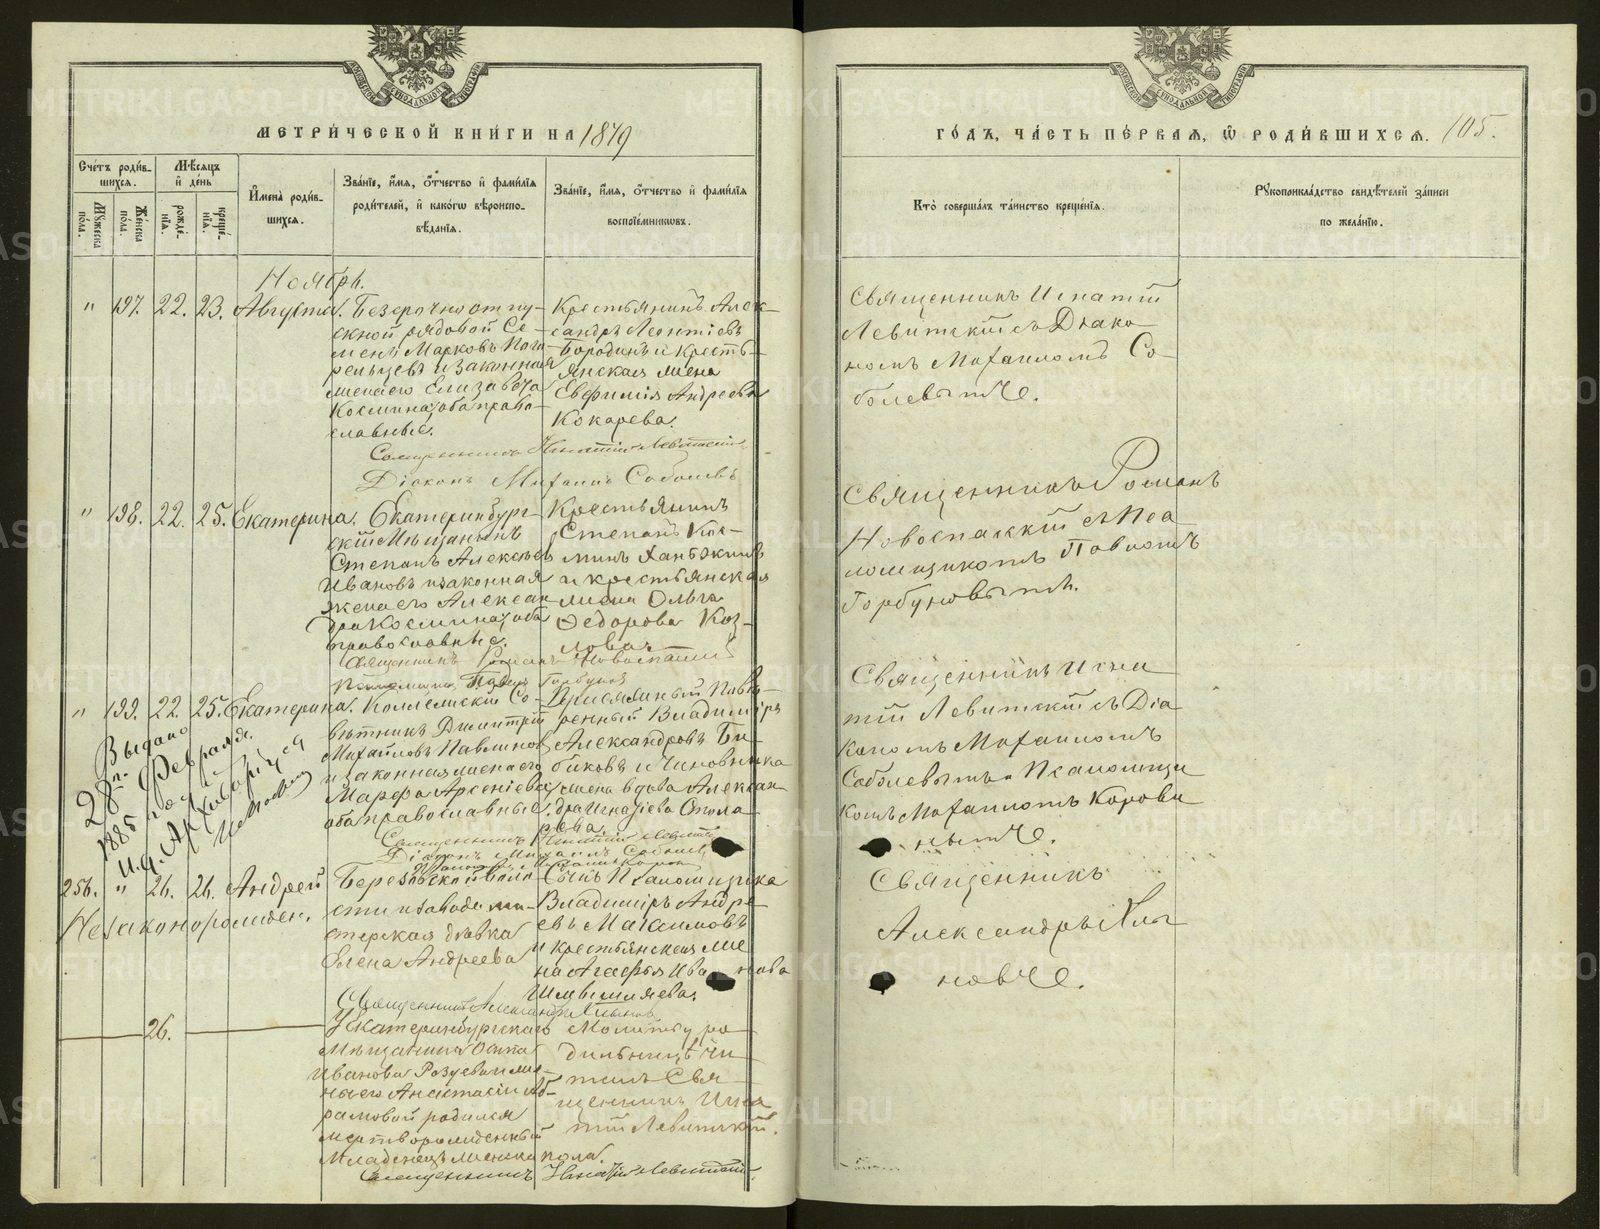 МЕТРИ́ЧЕСКОЙ КНИ́ГИ НА 1879
Сче́тъ роди́в-
шихся.
Мѣсяцъ
и҆ де́нь
Му́жеска
по́ла.
Же́нска
по́ла.
рожде́-
нїѧ.
креще́-
нїѧ.
И҆мена̀ роди́в-
шихся.
Зва́нїе, и҆́мя, ѻ҆́тчество и҆ фами́лїя
роди́телей, и҆ како́гѡ вѣроиспо-
вѣ́данїя.
Зва́нїе, и҆́мя, ѻ҆́тчество и҆ фами́лїя
воспрїе́мниковъ.
Ноябрь.
" 197. 22. 23. Августа.
Безсрочно отпу-
скной рядовой Се-
менъ Марковъ Пога-
рельцевъ и законная
жена его Елизавета
Космина, оба право-
славные.
Крестьянинъ Алек-
сандръ Леонтіевъ
Бородинъ и кресть-
янская жена
Евфимія Андреева
Кокарева.
Священникъ Игнатій Левитскій
Діаконъ Михаилъ Соболевъ
" 198. 22. 25. Екатерина.
Екатеринбург-
скій Мѣщанинъ
Степанъ Алексѣевъ
Ивановъ и законная
жена его Алексан-
дра Космина, оба
православные.
Крестьянинъ
Степанъ Кос-
минъ
и крестьянская
жена Ольга
Федорова Коз-
лова.
Священникъ Романъ Новоспаскій
Псаломщикъ Павелъ Горбуновъ
" 199. 22. 25. Екатерина.
Коллежскій Со-
вѣтникъ Димитрій
Михайловъ Павлинов
и законная жена его
Марфа Арсеніева,
оба православные.
Присяжный Повѣ-
ренный Владиміръ
Александровъ Би-
биковъ и Чиновника
жена вдова Алексан-
дра Игнатіева Столя
рова.
Выдано
28 Февраля
1885 года
И. д. Архиваріуса
Священникъ Игнатій Левитскій
Діаконъ Михаилъ Соболевъ
Псаломщикъ Михаилъ Коровинъ
256. " 26. 26. Андрей
Незаконорожден.
Березовской воло-
сти и завода ма-
стерская дѣвка
Елена Андреева
Сынъ Псаломщика
Владиміръ Андре-
евъ
и крестьянская же
на Агафья Ива нова
Священникъ Александръ
26.
Екатеринбургскаго
Мѣщанина Осипа
Иванова и же-
ны его Анастасіи Аб-
рамовой родился
мертворожденный
младенецъ женска пола.
Молитву ро
дильницѣ чи
талъ Свя-
щенникъ Игна
тій Левитскій.
Священникъ Игнатій Левитскій.
ГО́ДЪ, ЧА́СТЬ ПЕ́РВАЯ, Ѽ РОДИ́ВШИХСЯ. 105.
Кто̀ соверша́лъ та́инство креще́нїя.
Рꙋкоприкла́дство свидѣ́телей за́писи
по жела́нїю.
Священникъ Игнатій
Левитскій съ Діако
номъ Михаиломъ Со-
болевымъ.
Священникъ Романъ
Новоспаскій съ Пса
ломщикомъ Павломъ
Горбуновымъ.
Священникъ Игна
тій Левитскій съ Діа
кономъ Михаиломъ
Соболевымъ и Псаломщи
комъ Михаиломъ Корови
нымъ.
Священникъ
Александръ